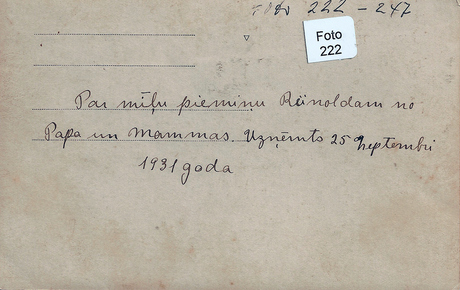 Foto 222 - 247
Foto
222
Par mīļu piemiņu Rūnoldam no
Papa un Mammas. Uzņēmts 25 Septembri
1931 goda